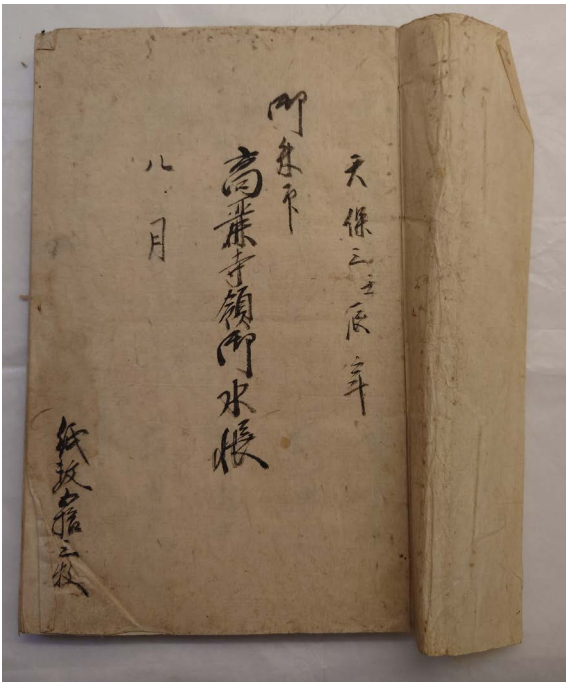 天保三壬辰年
御朱印
高寺領御水帳
八月
紙数拾三枚